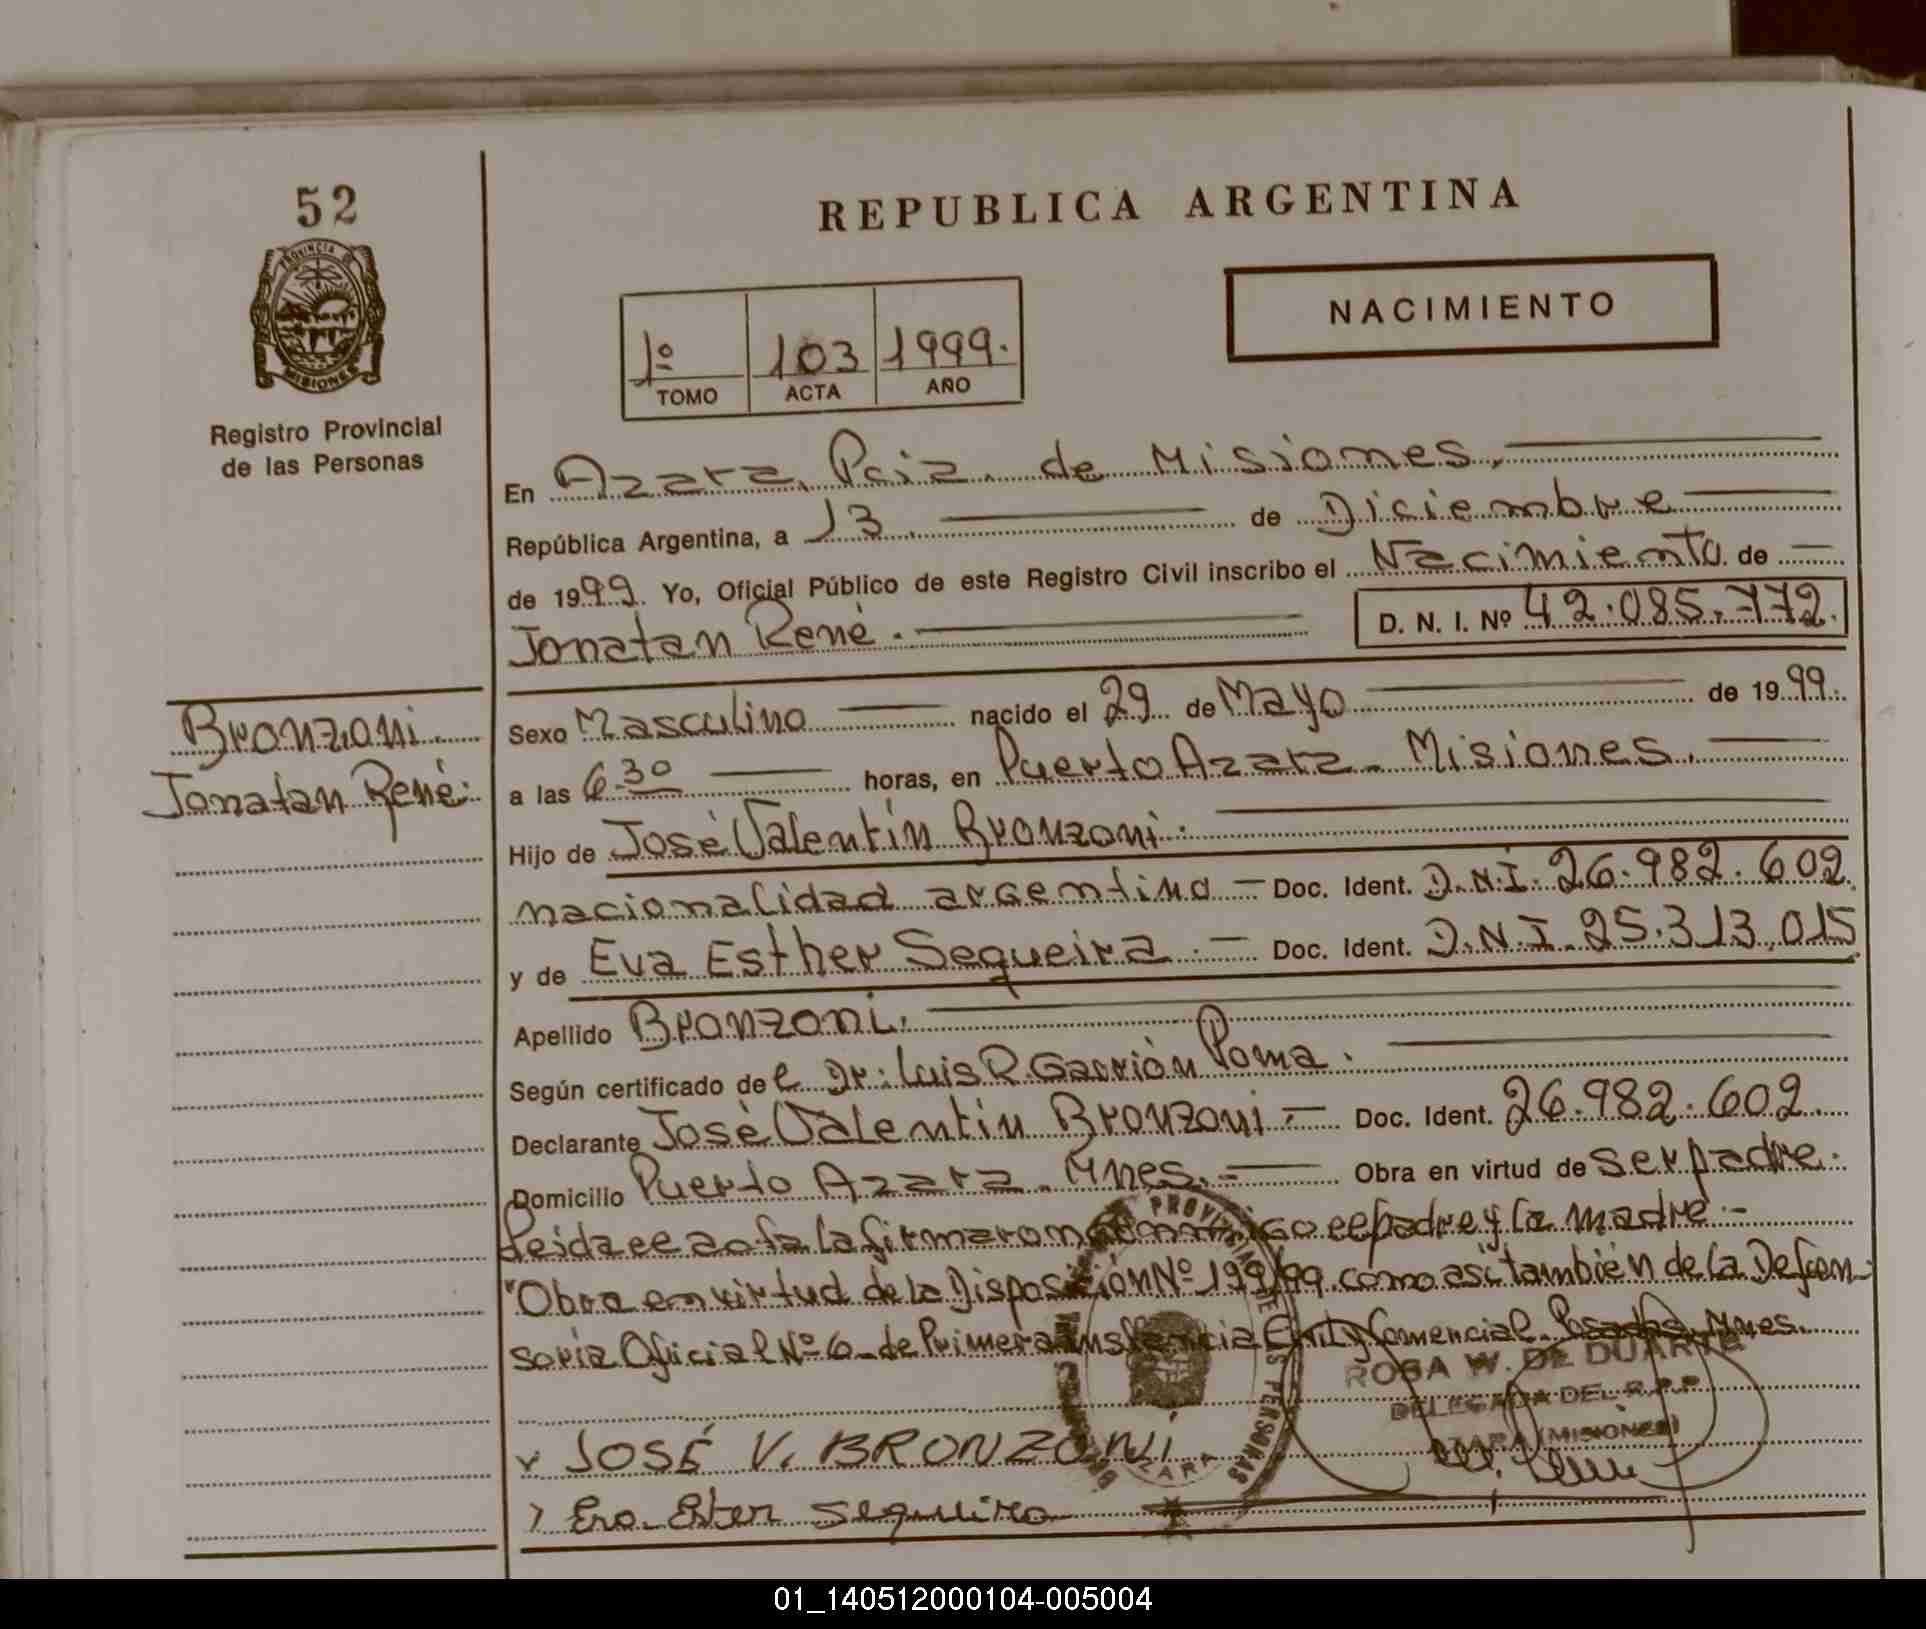 52
PROVINCIA DE
MISIONES
Registro Provincial
de las Personas
REPUBLICA ARGENTINA
NACIMIENTO
1º 103 1999.
TOMO ACTA AÑO
En Azara, Pcia. de Misiones.
República Argentina, a 13 de Diciembre
de 1999. Yo, Oficial Público de este Registro Civil inscribo el Nacimiento de
Jonatan René. D. N. I. Nº 42.085.772.
Bronzoni
Jonatan René.
Sexo Masculino nacido el 29 de Mayo de 1999.
a las 6.30 horas, en Puerto Azara - Misiones.
Hijo de José Valentín Bronzoni.
nacionalidad argentina - Doc. Ident. D.N.I. 26.982.602
y de Eva Esther Sequeira. - Doc. Ident. D.N.I. 25.313.015
Apellido Bronzoni.
Según certificado del Dr. Luis R. Garrión Poma.
Declarante José Valentín Bronzoni. - Doc. Ident. 26.982.602.
Domicilio Puerto Azara - Mnes. - Obra en virtud de ser padre.
Leida el acta la firmaron conmigo el padre y la madre. -
"Obra en virtud de la Disposición Nº 199/99 como asi también de la Defen-
soria Oficial Nº 6 - de Primera Instancia Civil y Comercial - Posadas, Mnes.
ROSA W. DE DUARTE
DELEGADA DEL R.P.P
AZARA (MISIONES)
JOSÉ V. BRONZONI
Eva Ester Sequeira
01_140512000104-005004